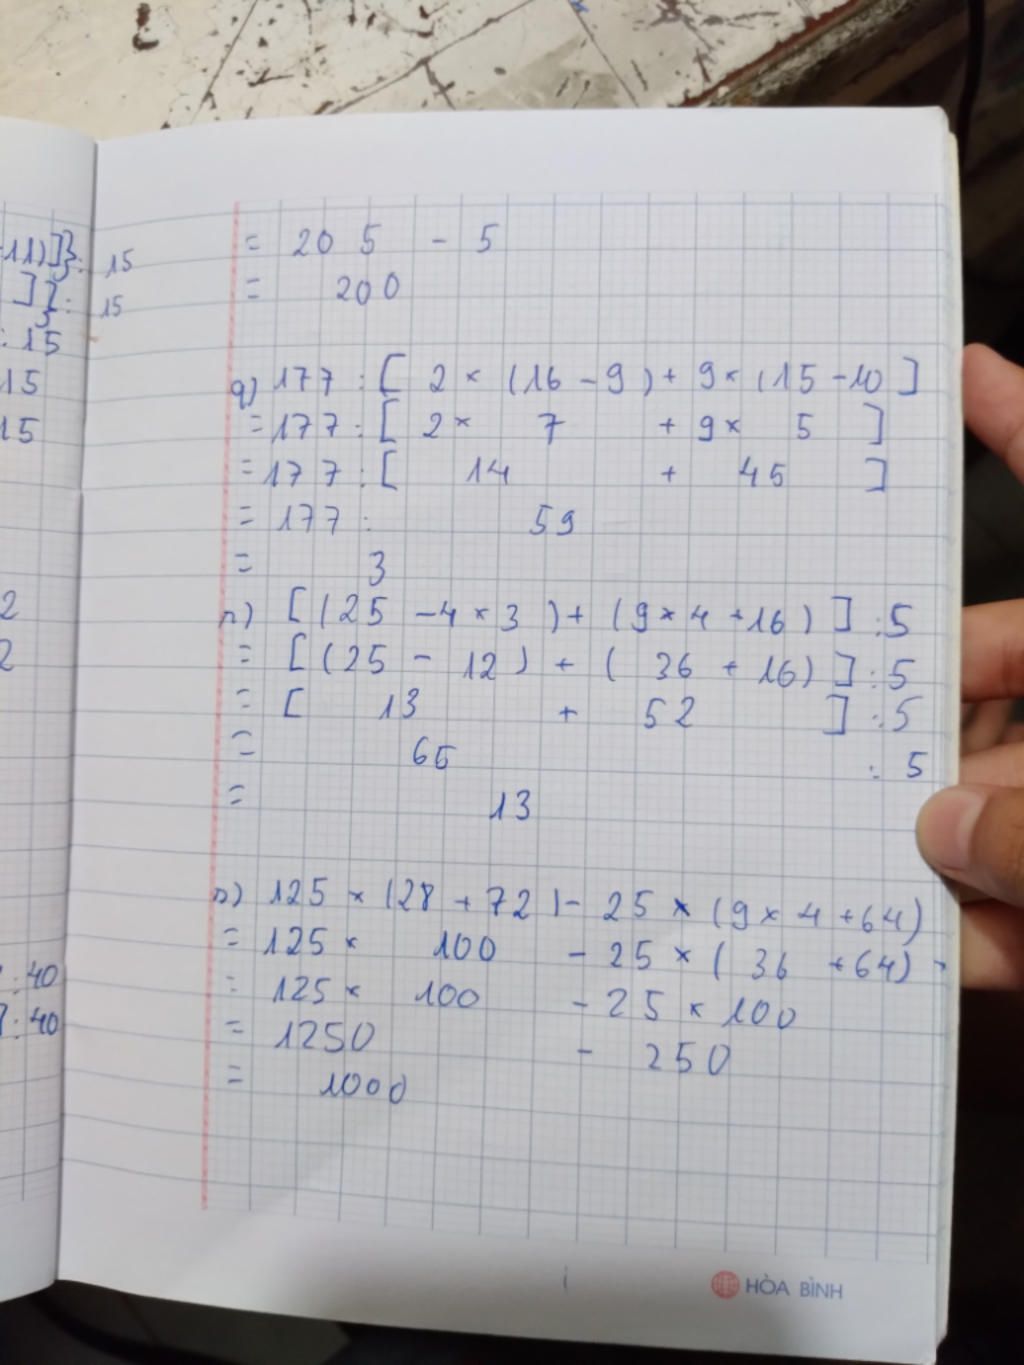 11)]}: 15
]}: 15
: 15
15
15
2
2
: 40
: 40
= 205 - 5
= 200
q) 177 : [ 2 × (16 - 9) + 9 × (15 - 10 ]
= 177 : [ 2 × 7 + 9 × 5 ]
= 177 : [ 14 + 45 ]
= 177 : 59
= 3
r) [(25 - 4 × 3 ) + (9 × 4 + 16) ] : 5
= [(25 - 12) + ( 36 + 16) ] : 5
= [ 13 + 52 ] : 5
= 65 : 5
= 13
s) 125 × (28 + 72) - 25 × (9 × 4 + 64)
= 125 × 100 - 25 × ( 36 + 64)
= 125 × 100 - 25 × 100
= 1250 - 250
= 1000
HÒA BÌNH